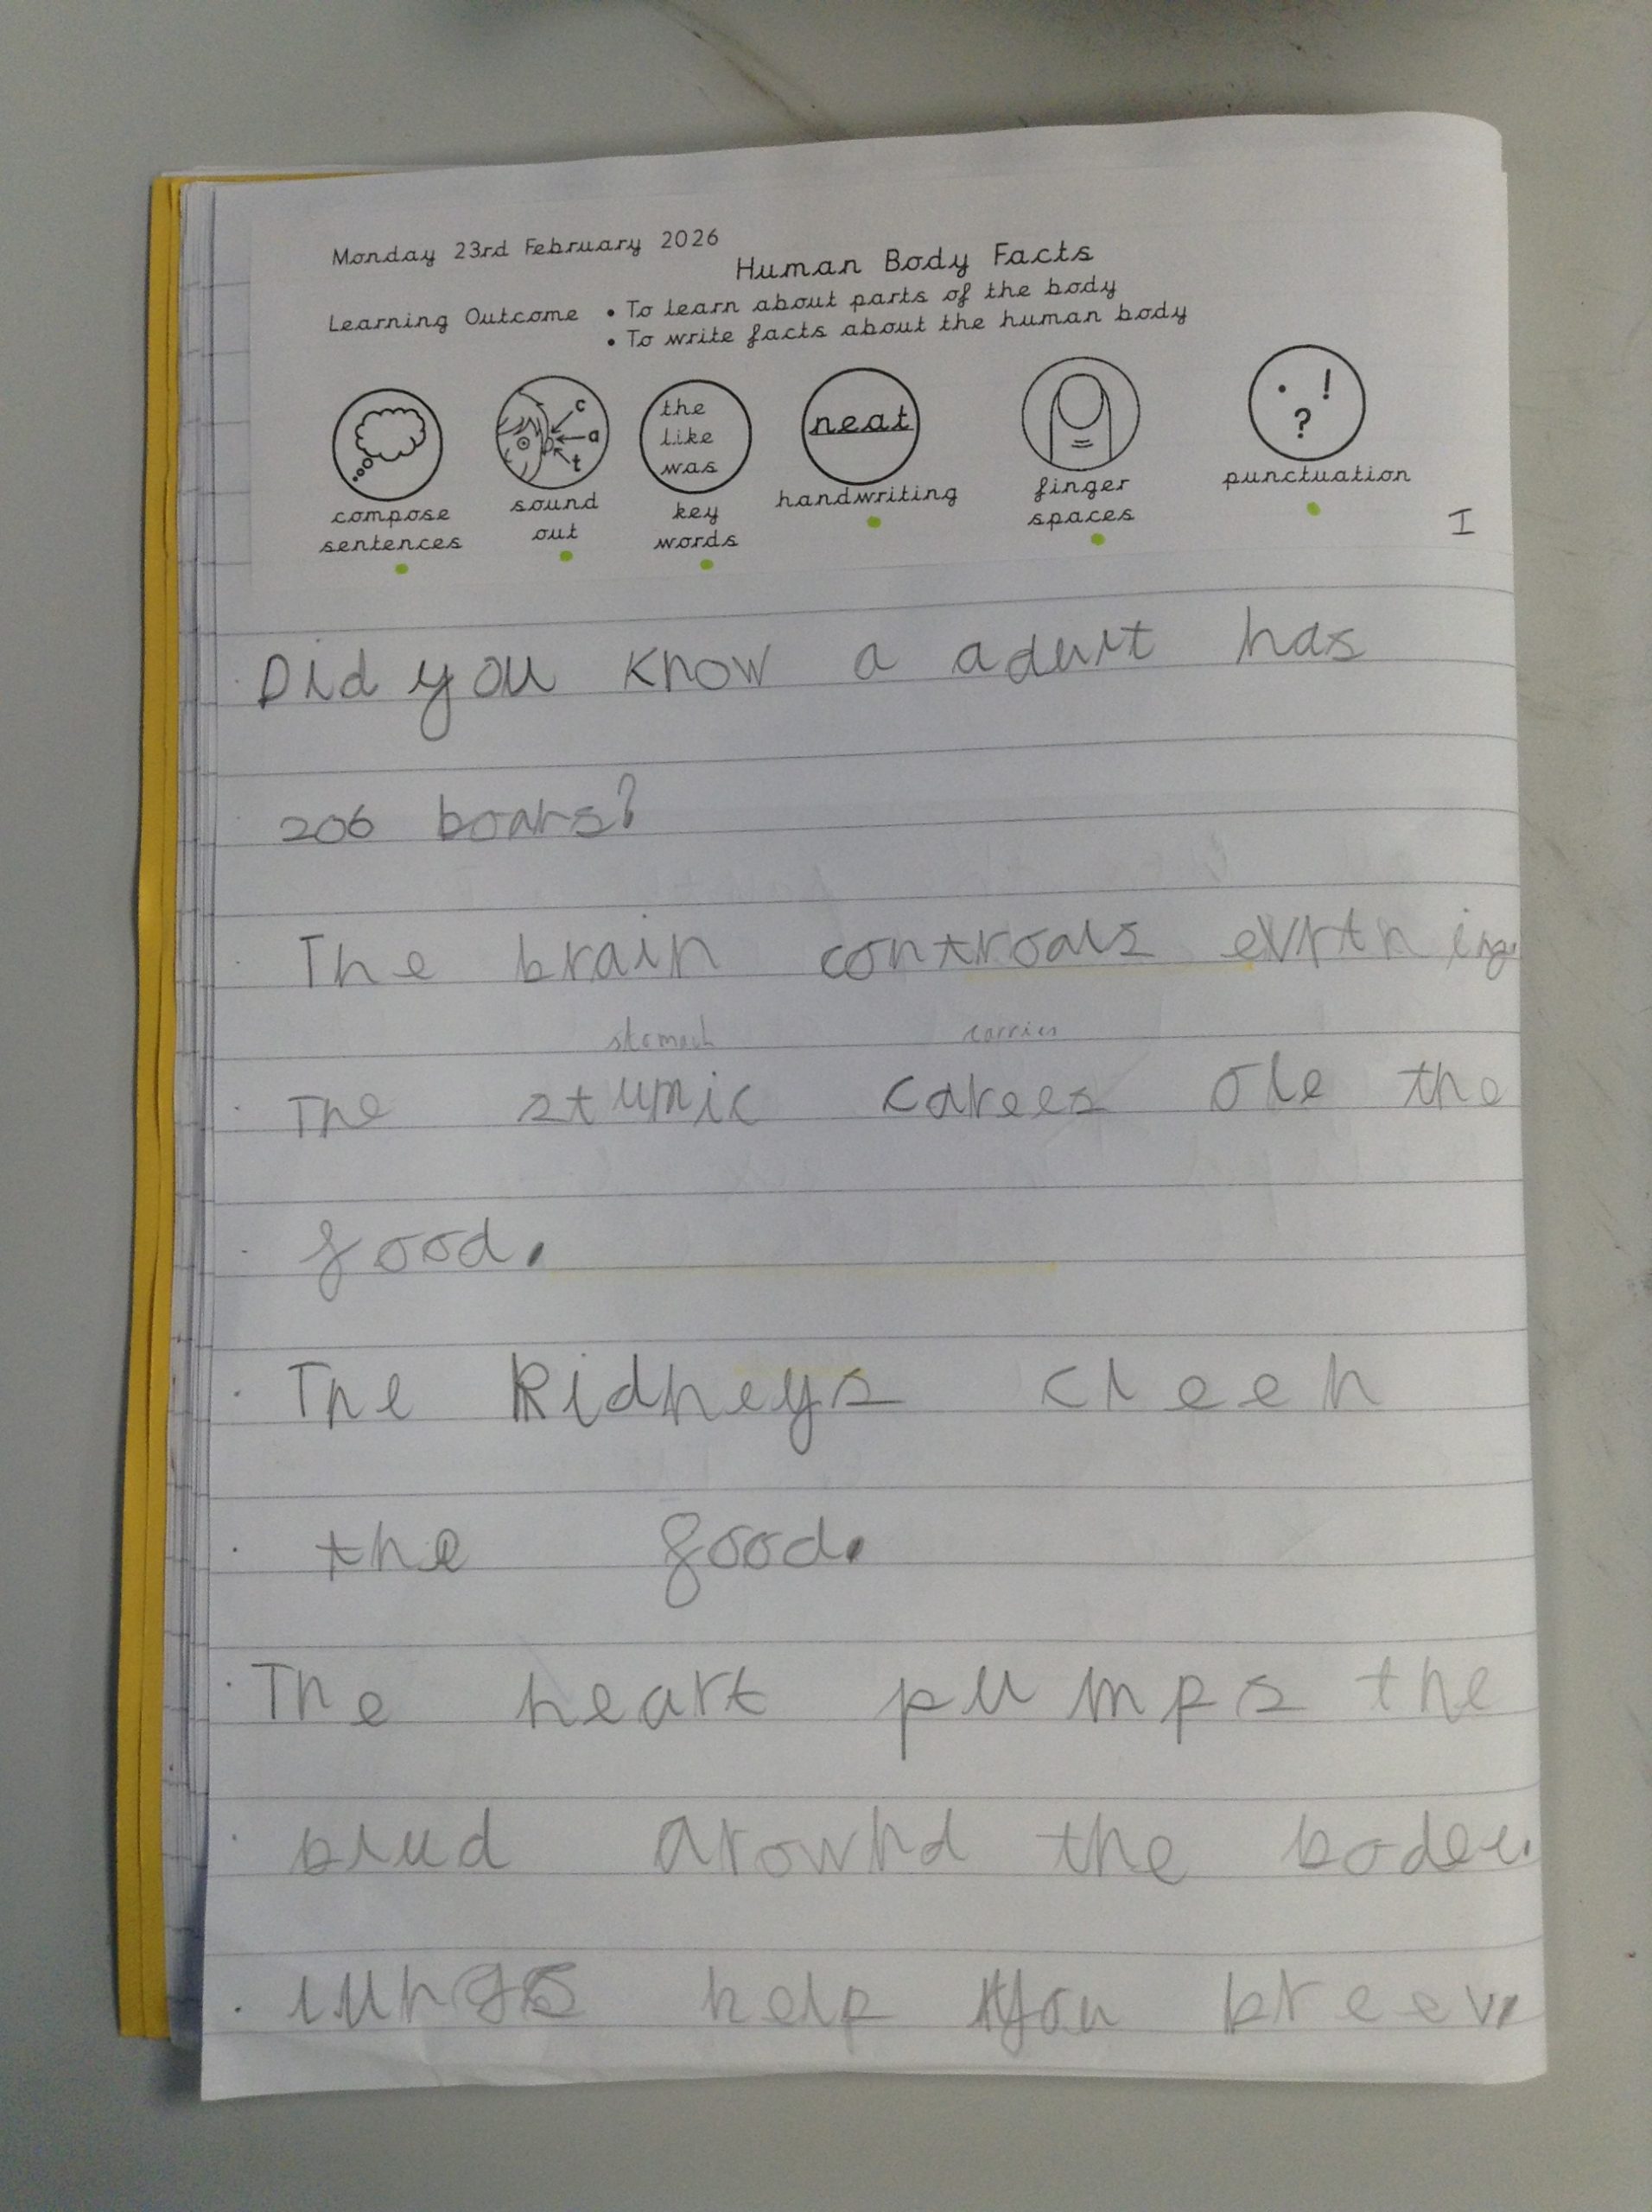 Monday 23rd February 2026
Human Body Facts
Learning Outcome • To learn about parts of the body
• To write facts about the human body
c
a
t
the
like
was
neat
. !
?
compose
sentences
sound
out
key
words
handwriting
finger
spaces
punctuation
I
Did you know a adult has
206 boans?
The brain controals evrthing.
stomach carries
The stumic carees ole the
food.
The Kidneys cleen
the food.
The heart pumps the
blud arownd the bodee.
lungs help you breev